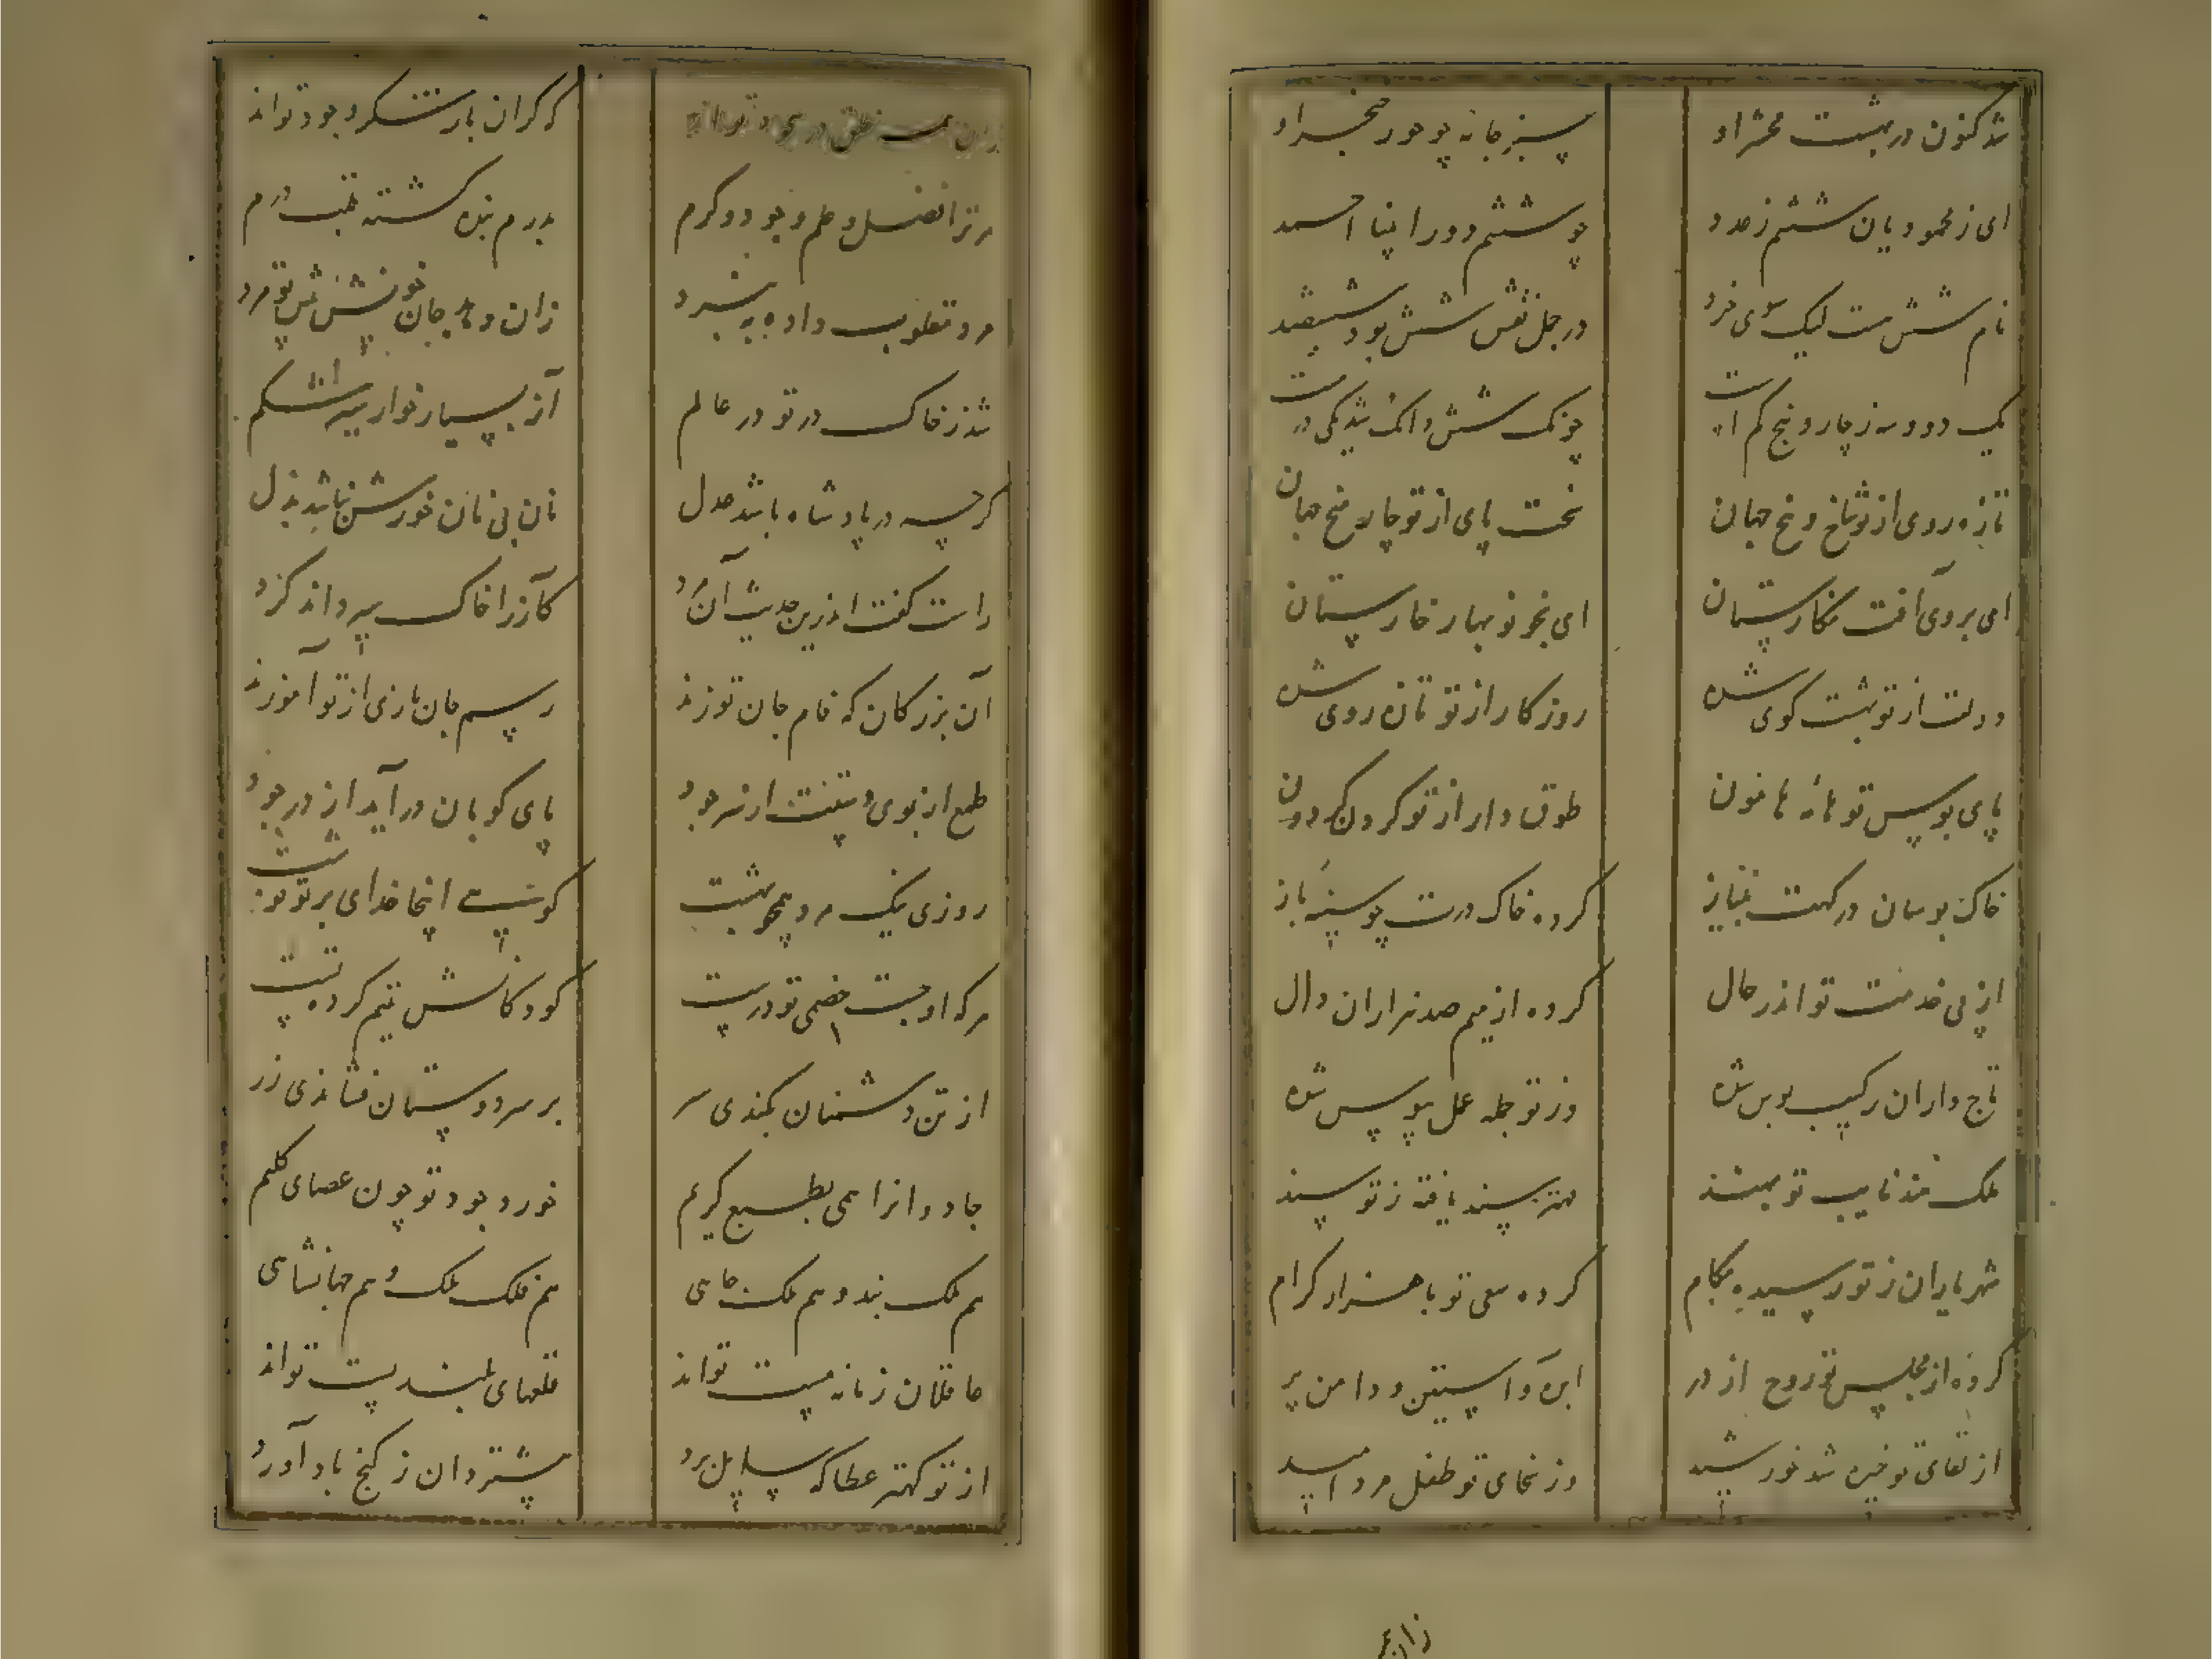 شد کنون در بهشت محشر او سبز جامه چو حور خنجر او
ای ز محمودیان ششم ز عدد چو ششم دور را بنا احمد
نام شش هست لیک سوی خرد در جمل نقش شش بود شیصد
یک دو و سه ز چار و پنج کم است چونک شش وانک شد یکی درست
تازه روی از تو شاخ و بیخ جهان سخت پای از تو چار میخ جهان
ای بروی آفت نگارستان ای بخو نوبهار خارستان
دولت از تو بهشت کوی شده روزکار از تو تازه روی شده
پای بوس تو هامه هامون طوق دار از تو کردن کردون
خاک بوسان درکهت بنیاز کرده خاک درت چو سینه باز
از پی خدمت تو اندر حال کرده از میم صد هزاران دال
تاج داران رکیب بوس شده وز تو جمله عمل سپوس شده
ملک هند نایب تو بهند مهتر سند یافته ز تو سند
شهریاران ز تو رسیده بکام کرده سعی تو با هزار کرام
کرده از مجلس تو روح از در ابره و استین و دامن پر
از لقای تو خیره شد خورشید وز سخای تو طفل مرد امید
زان
کر کران بار شکر و جود تواند
مر ترا فضل و علم و جود و کرم بدرم بنده کشته نیست درم
مرد مغلوب داده به بنبرد زان دهد جان خویش پیش تو مرد
شد ز خاک در تو در عالم آز بسیار خوار سیر شکم
کرچه در پادشاه باشد عدل نان بی نان خورش نباشد بذل
راست کفت اندرین حدیث آن مرد کاز را خاک سیر داند کرد
آن بزرکان که فام جان توزند رسم جان بازی از تو آموزند
طمع از بوی و بینت از سر جود پای کوبان درآید از در جود
روزی نیک مرد همچو بهشت کوییی اینجا خدای بر تو نوشت
هرکه او جست خصمی تو درست کودکانش یتیم کرده تست
از تن دشمنان بکندی سر بر سر دوستان فشاندی زر
جادوانرا همی بطبع کریم خورد جود تو چون عصای کلیم
هم ملک بند و هم ملک جاهی هم فلک ملک و هم جهانشاهی
عاقلان زمانه مست تواند قلعهای بلند پست تواند
از تو کهتر عطا که سایل برد بیشتر دان ز کنج باد آورد